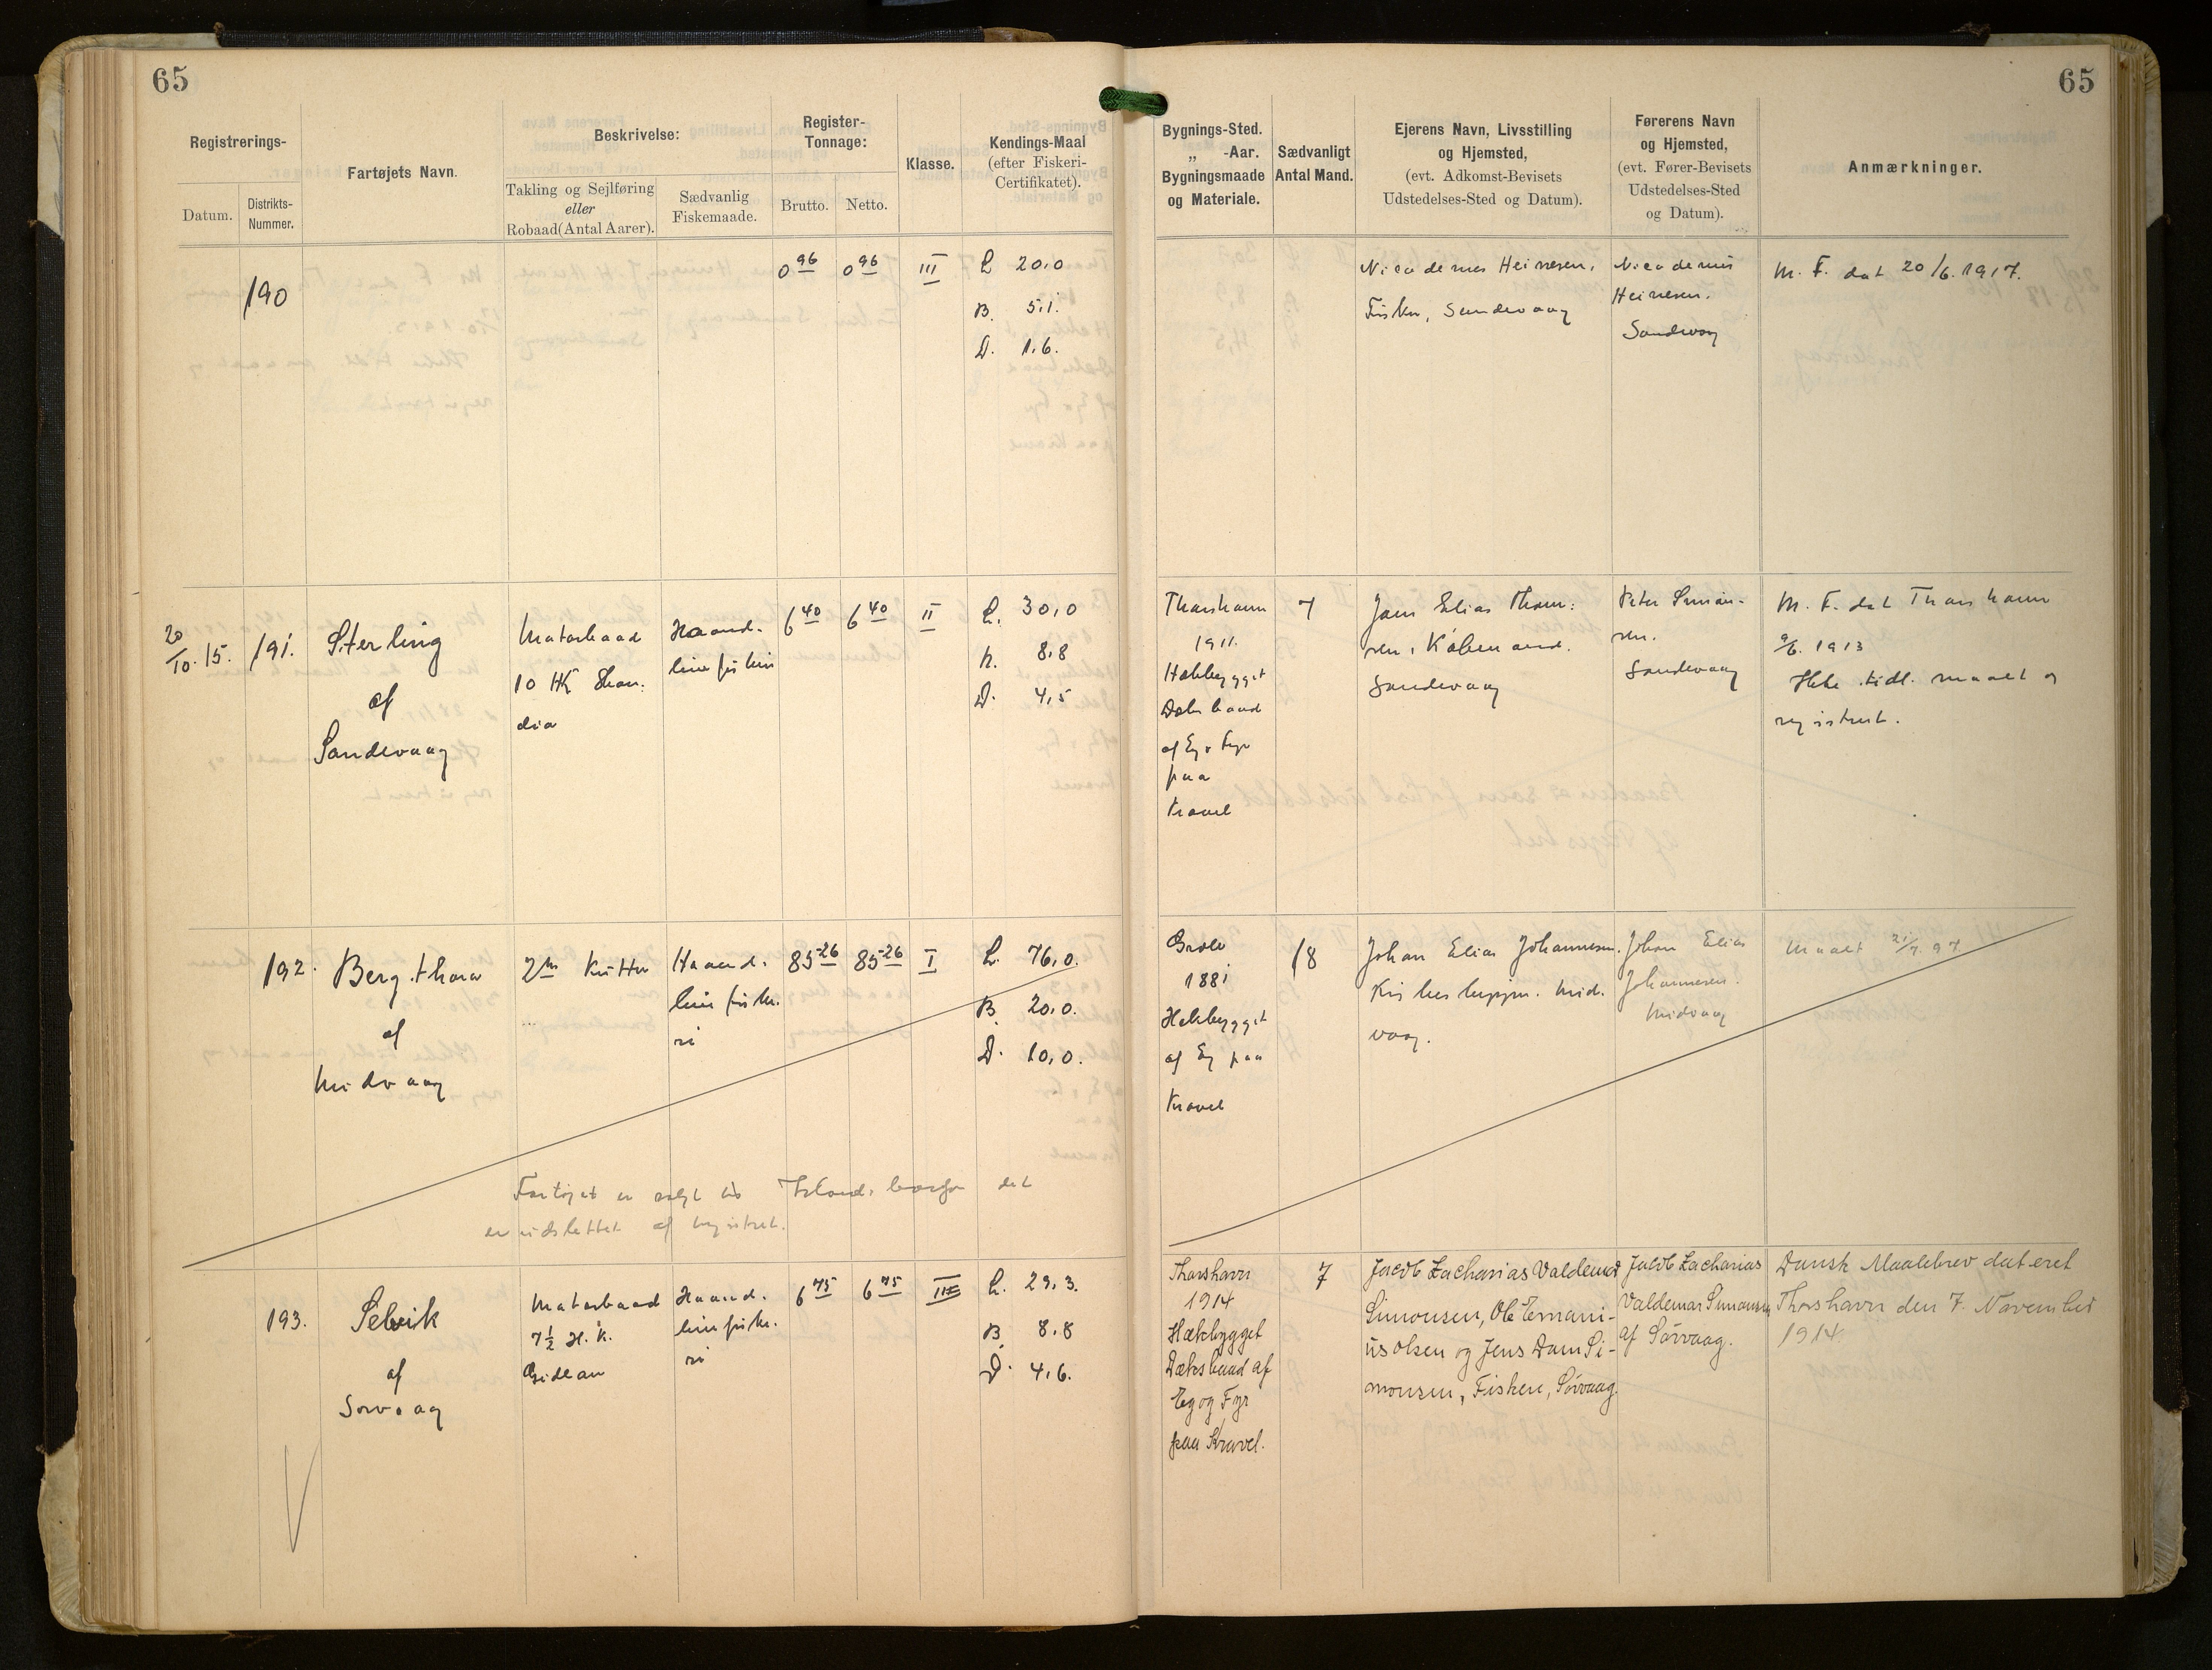 65
65
Registrerings-
Datum.
Distrikts-
Nummer.
Fartøjets Navn.
Beskrivelse:
Takling og Sejlføring
eller
Robaad (Antal Aarer).
Sædvanlig
Fiskemaade.
Register-
Tonnage:
Brutto.
Netto.
Klasse.
Kendings-Maal
(efter Fiskeri-
Certifikatet).
Bygnings-Sted.
„ -Aar.
Bygningsmaade
og Materiale.
Sædvanligt
Antal Mand.
Ejerens Navn, Livsstilling
og Hjemsted,
(evt. Adkomst-Bevisets
Udstedelses-Sted og Datum).
Førerens Navn
og Hjemsted,
(evt. Fører-Bevisets
Udstedelses-Sted
og Datum).
Anmærkninger.
190
0 96
0 96
III
L 20,0
B. 5,1.
D. 1,6.
Nicodemus Heinesen,
Fisker, Sandevaag
Nicodemus
Heinesen.
Sandevaag
M. F. dat 20/6. 1917.
20/10. 15.
191.
Sterling
af
Sandevaag
Motorbaad
10 HK Skan-
dia
Haand-
linefiskeri
6 40
6 40
II
L. 30,0
8,8
D. 4,5
Thorshavn
1911.
Hækbygget
Dæksbaad
af Eg & Fyr
paa
Kravel
7
Jens Elias Thom-
sen, Købmand.
Sandevaag
Peter Simon-
sen.
Sandevaag
M. F. dat Thorshavn
9/6. 1913
Ikke tidl. maalt og
registreret.
192.
Bergthora
af
Midvaag
Kutter
Haand-
linefiske-
ri
85 26
85 26
I
L. 76,0.
B. 20,0.
D. 10,0.
1881
Hækbygget
af Eg paa
Kravel
18
Johan Elias Johannesen.
Mid-
vaag.
Johan Elias
Johannesen.
Midvaag
Maalt 21/7. 97
Fartøjet er solgt til Island, hvorfor det
er udslettet af Registret.
193.
Selvik
af
Sorvaag
Motorbaad
7½ H. K.
Gideon
Haand-
linefiske-
ri
6 75
6 75
III
L. 29,3.
B. 8,8
D. 4,6.
Thorshavn
1914
Hækbygget
Dæksbaad af
Eg og Fyr
paa Kravel.
7
Jacob Zacharias Valdemar
Simonsen, Ole Ernani-
us Olsen og Jens Dam Si-
monsen, Fiskere, Sörvaag.
Jacob Zacharias
Valdemar Simonsen
af Sörvaag.
Dansk Maalebrev dateret
Thorshavn den 7. November
1914.